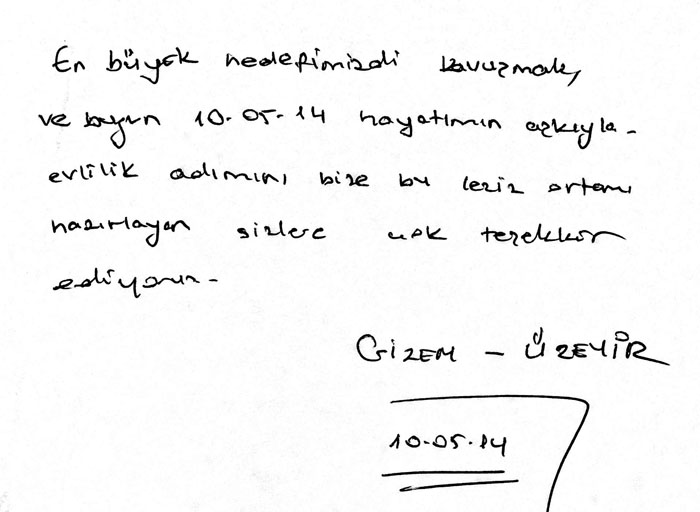 En büyük hedefimizdi kavuşmak,
ve bugün 10.05.14 hayatımın aşkıyla
evlilik adımını bize bu leziz ortamı
hazırlayan sizlere çok teşekkür
ediyoruz.
GİZEM - ÜZEYİR
10.05.14